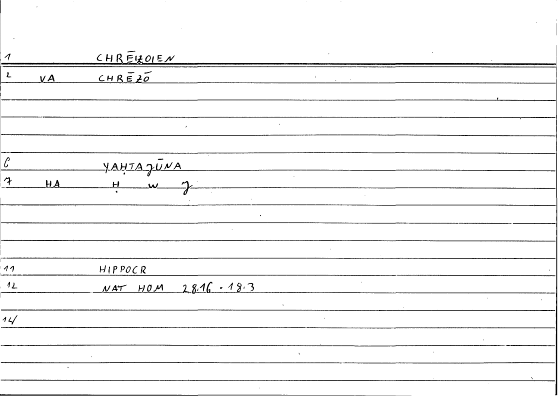 1 CHRĒIZOIEN
2 VA CHRĒZŌ
6 YAḤTAǦŪNA
7 HA Ḥ W Ǧ
11 HIPPOCR
12 NAT HOM 28.16 - 18.3
14